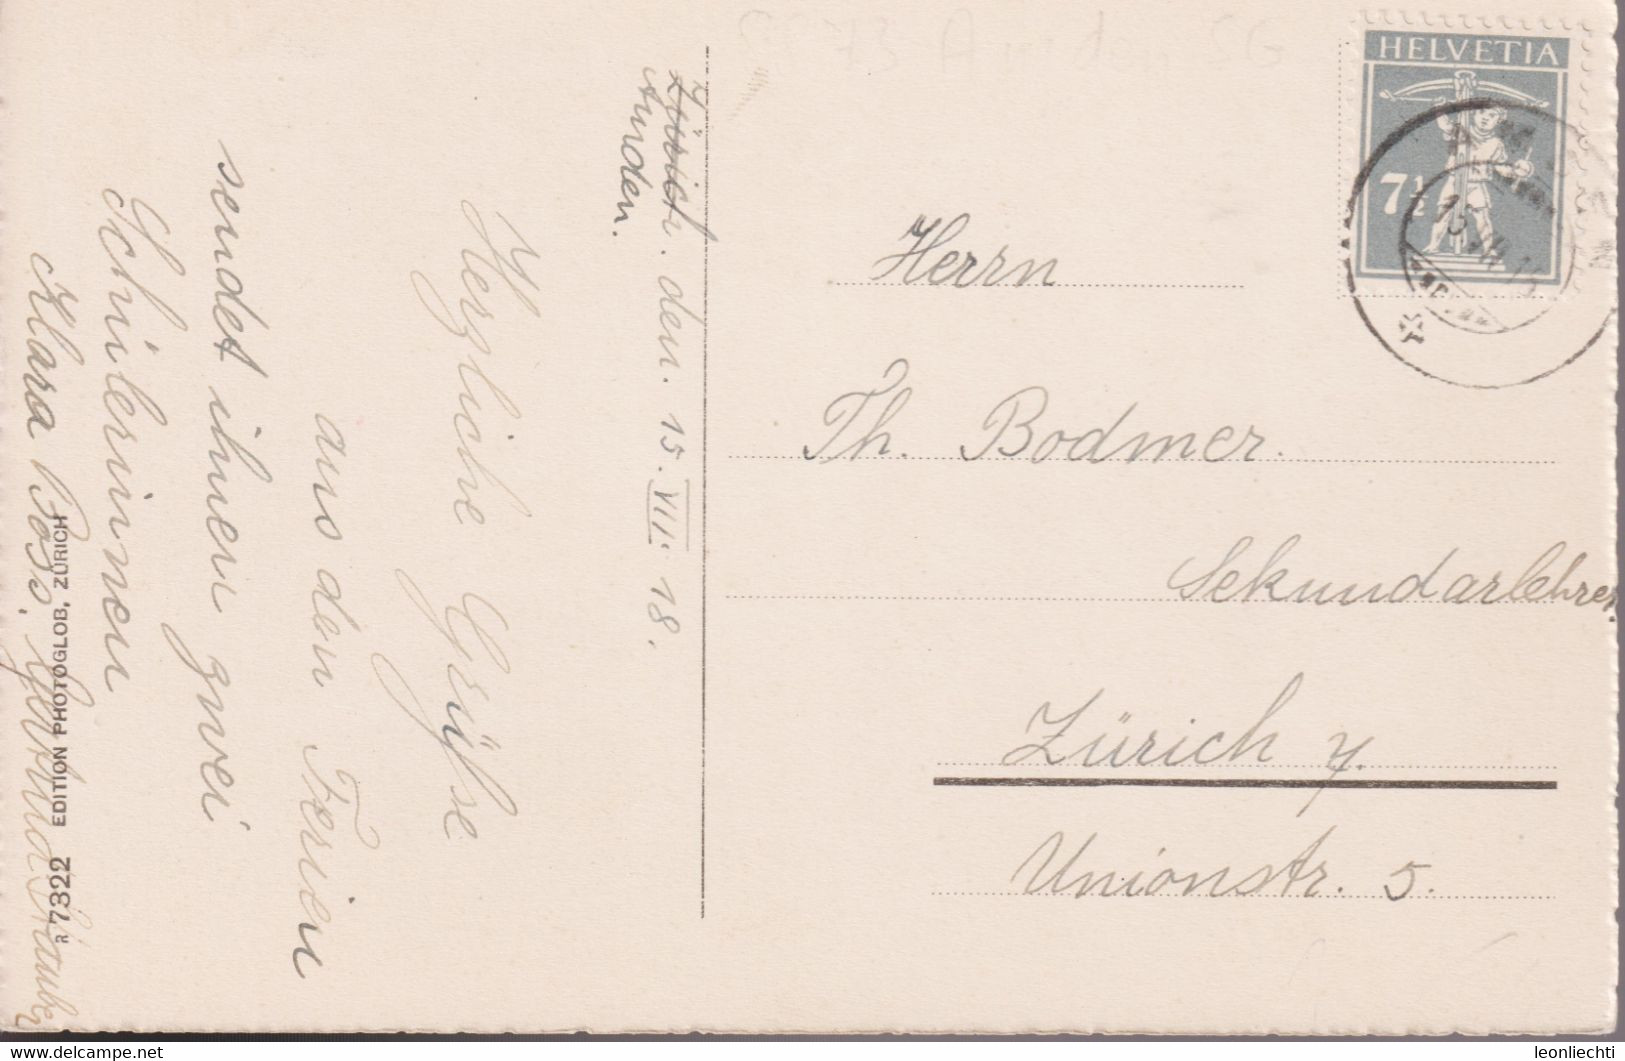 Zürich. den. 15. VII. 18.
Amden.
Herzliche Grüsse
aus den Ferien
sendet ihnen zwei
Schülerinnen
Klara Boss,
R 7322 EDITION PHOTOGLOB, ZÜRICH
HELVETIA
7½
Herrn
Th. Bodmer.
Sekundarlehrer
Zürich 7.
Unionstr. 5.
www.delcampe.net
leonliechti